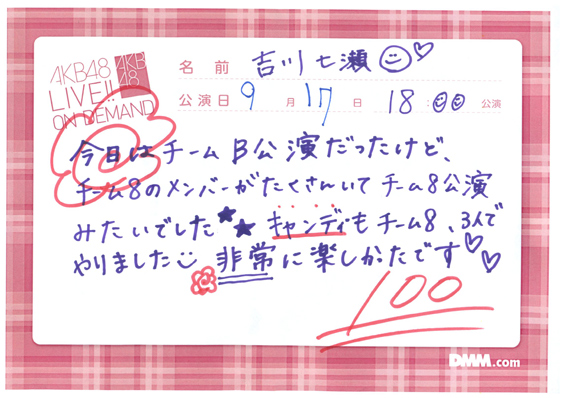 AKB48
LIVE!!
ON DEMAND
AKB
48
名前 吉川七瀬
公演日 9月17日 18:00公演
今日はチームB公演だったけど、
チーム8のメンバーがたくさんいてチーム8公演
みたいでした
キャンディもチーム8、3人で
やりました 非常に楽しかたです
100
DMM.com